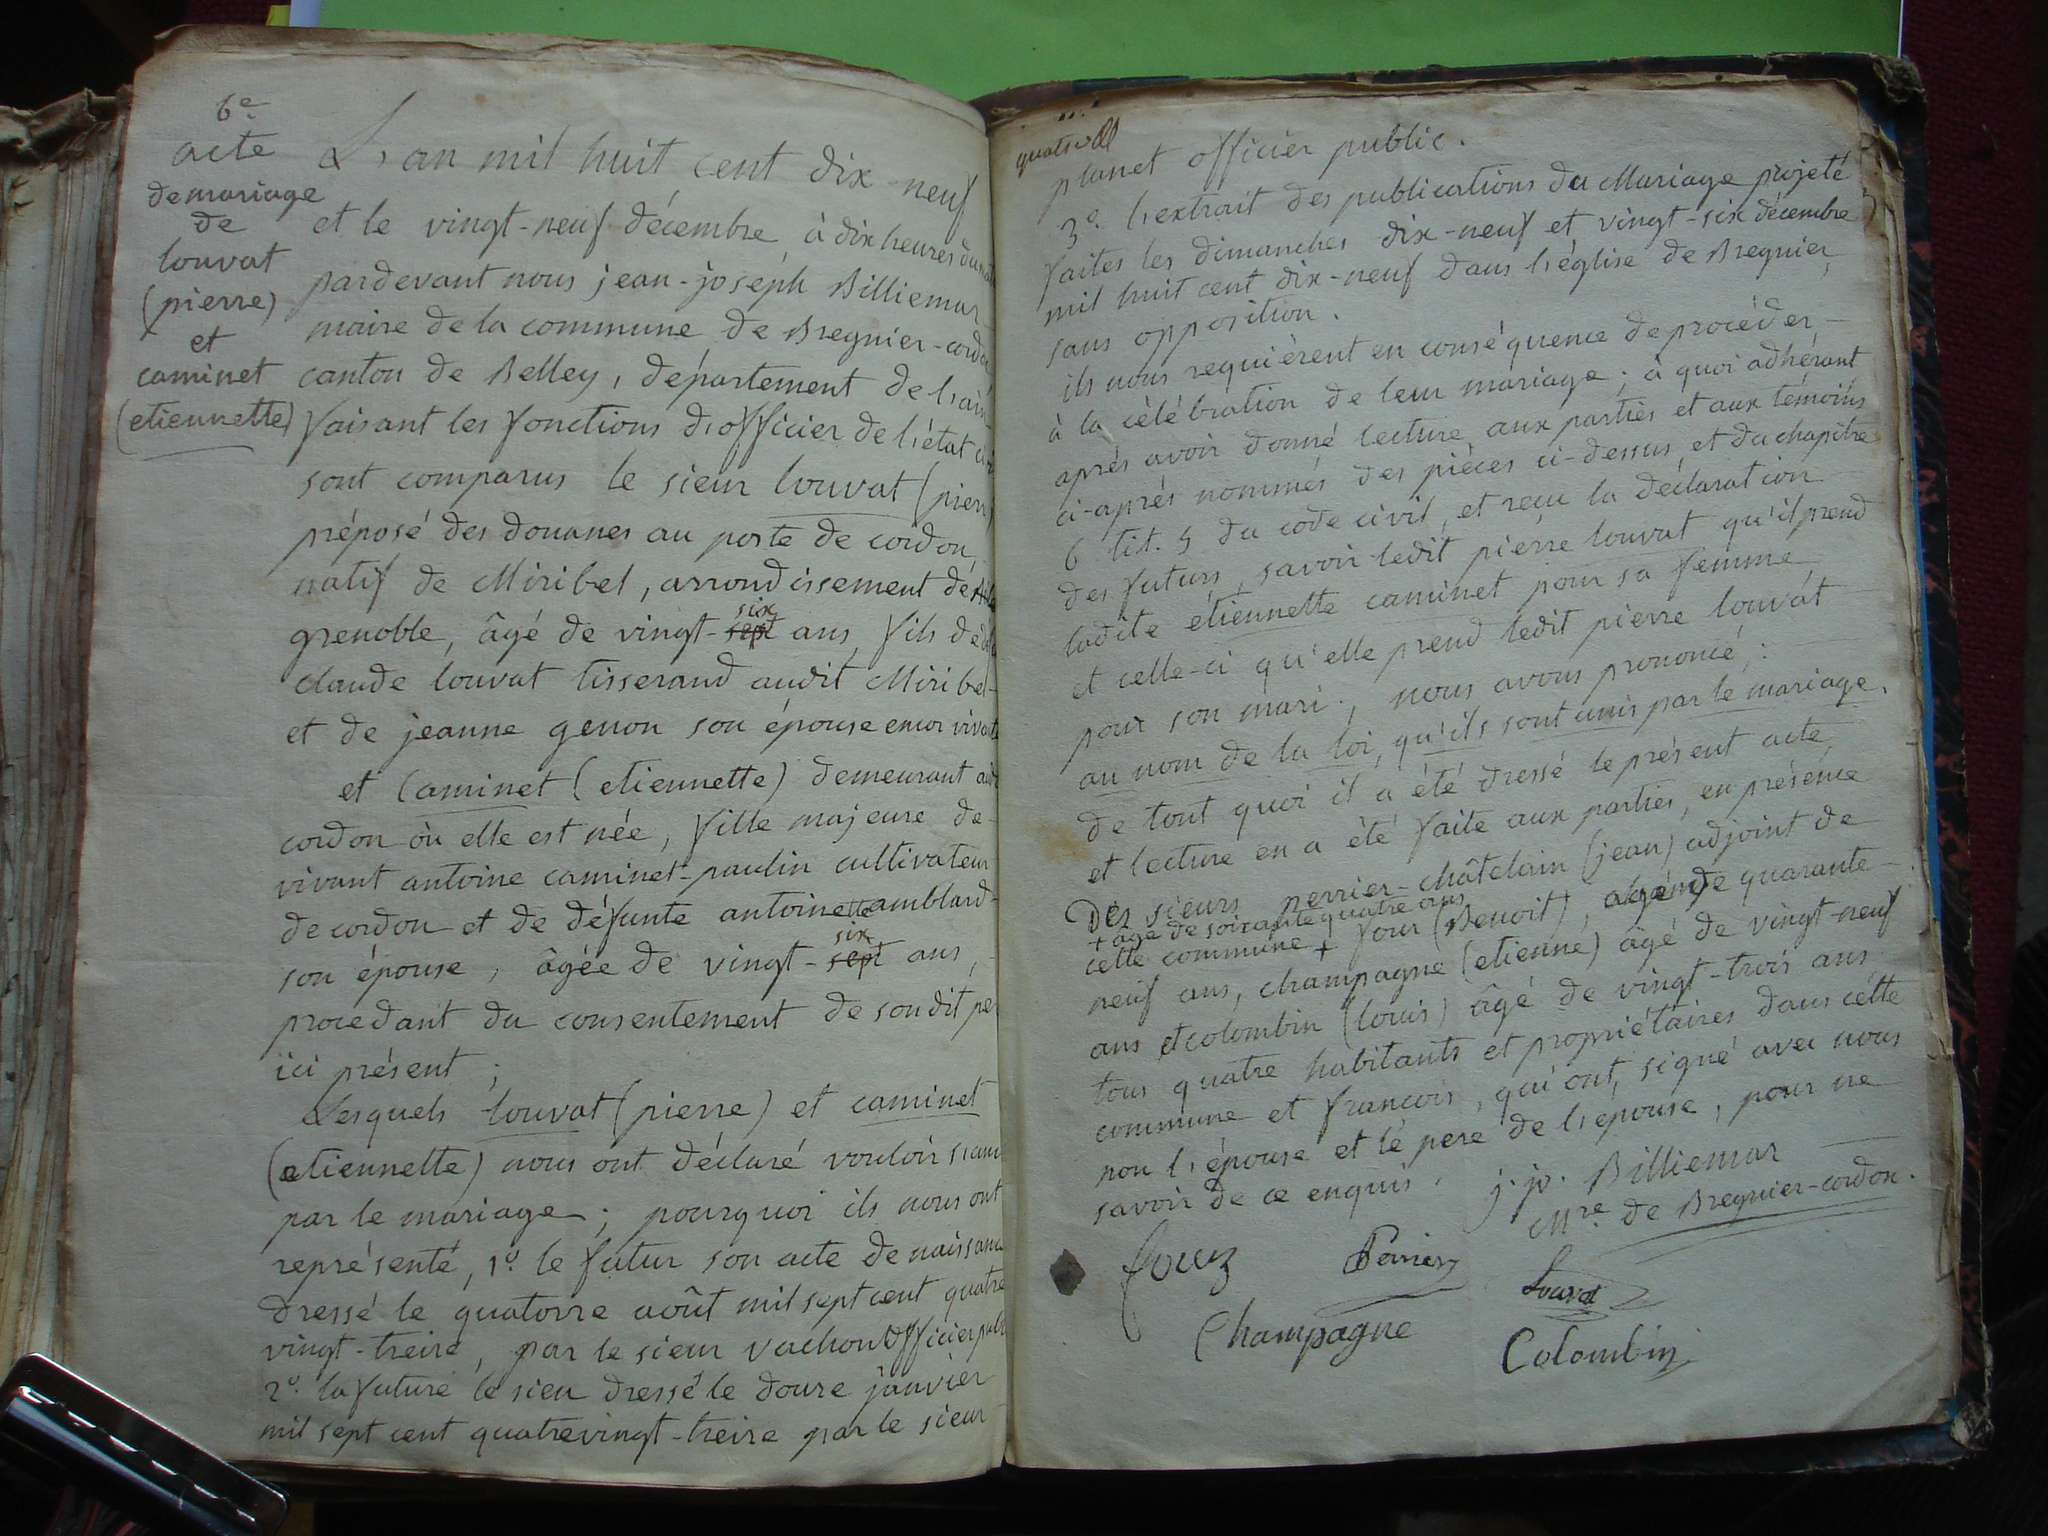 6e
acte
de mariage
de
louvat
(pierre)
et
caminet
(etiennette)
L'an mil huit cent dix-neuf
et le vingt-neuf décembre, à dix heures du
pardevant nous jean-joseph Billiemar-
maire de la commune de Bregnier-cordon
canton de Belley, département de l'ain
faisant les fonctions d'officier de l'état
sont comparus le sieur louvat (pierre)
préposé des douanes au poste de cordon
natif de Miribel, arrondissement de
grenoble, âgé de vingt-sept six ans, fils de
claude louvat tisserand audit Miribel-
et de jeanne genon son épouse encor vivante
et Caminet (etiennette) demeurant
cordon où elle est née, fille majeure de-
vivant antoine caminet-paulin cultivateur
de cordon et de défunte antoinette amblard-
son épouse, âgée de vingt-sept six ans,-
procedant du consentement de sondit per
ici présent ;
Lesquels louvat (pierre) et caminet
(etiennette) nous ont déclaré vouloir s'unir
par le mariage ; pourquoi ils nous ont
représenté, 1o. le futur son acte de naissance
dressé le quatorze août mil sept cent quatre
vingt-treize, par le sieur vachon officier
2o. la future le sien dressé le douze janvier
mil sept cent quatrevingt-treize par le sieur-
planet officier public.
3o. l'extrait des publications du Mariage projeté
faites les dimanches dix-neuf et vingt-six décembre
mil huit cent dix-neuf dans l'église de Bregnier,
sans opposition.
ils nous requièrent en conséquence de procéder-
à la célébration de leur mariage ; à quoi adhérant
après avoir donné lecture aux parties et aux témoins
ci-après nommés des pièces ci-dessus, et du chapitre
6 tit. 5 du code civil, et reçu la déclaration
des futurs, savoir ledit pierre louvat qu'il prend
ladite etiennette caminet pour sa femme,
et celle-ci qu'elle prend ledit pierre louvat
pour son mari., nous avons prononcé, :
au nom de la loi, qu'ils sont unis par le mariage.
de tout quoi il a été dressé le présent acte,
et lecture en a été faite aux parties, en présence
Des sieurs perrier-châtelain (jean) adjoint de
+ âgé de soixante quatre ans
cette commune + four (Benoit), âgé de quarante-
neuf ans, champagne (etienne) âgé de vingt-neuf
ans et colombin (louis) âgé de vingt-trois ans
tous quatre habitants et propriétaires dans cette
commune et françois, qui ont signé avec nous
non l'épouse et le pere de l'épouse, pour ne
savoir de ce enquis.
j. jo. Billiemar
Mre de Bregnier-cordon.
fourz
Perrier
Louvat
Champagne
Colombin